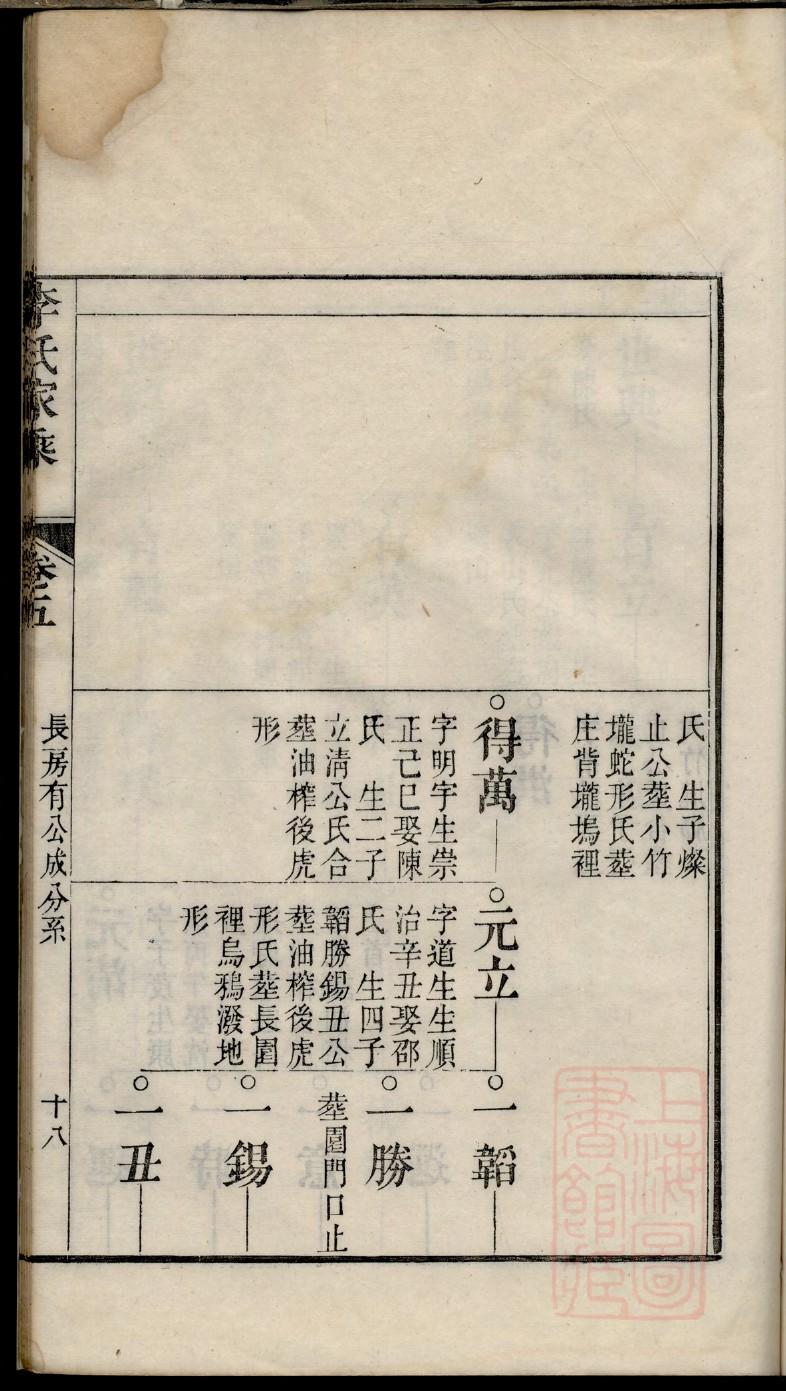 氏 生子燦
止公塟小竹
壠蛇形氏塟
庄背壠塢裡
得萬
字明宇生崇
正己巳娶陳
氏 生二子
立清公氏合
塟油榨後虎
形
元立
字道生生順
治辛丑娶邵
氏 生四子
韜勝錫丑公
塟油榨後虎
形氏塟長園
裡烏鴉潑地
形
一韜
一勝
塟園門口止
一錫
一丑
李氏家乘
卷五
長房有公成分系
十八
上海圖書館藏